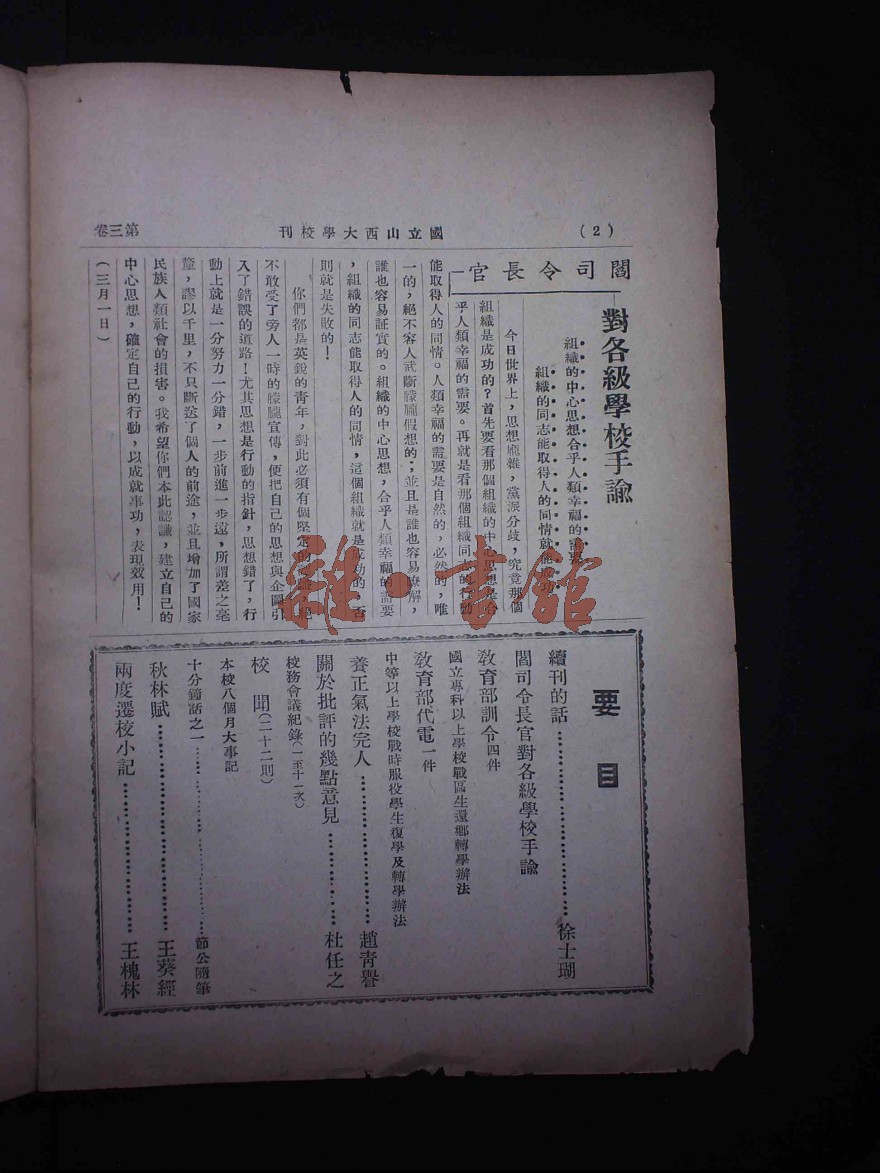 (2)
國立山西大學校刊
第三卷
閻司令長官
對各級學校手諭
組織的中心思想合乎人類幸福的需要
組織的同志能取得人的同情就能成功
今日世界上，思想龐雜，黨派分歧，究竟那個
組織是成功的？首先要看那個組織的中心思想是合
乎人類幸福的需要。再就是看那個組織同志的行動
能取得人的同情。人類幸福的需要是自然的，必然的，唯
一的，絕不容人武斷朦朧假想的；並且是誰也容易瞭解，
誰也容易証實的。組織的中心思想，合乎人類幸福的需要
，組織的同志能取得人的同情，這個組織就是成功的，否
則就是失敗的！
你們都是英銳的青年，對此必須有個堅定的
不敢受了旁人一時的朦朧宣傳，便把自己的思想與企圖引
入了錯誤的道路！尤其思想是行動的指針，思想錯了，行
動上就是一分努力一分錯，一步前進一步遠，所謂差之毫
釐，謬以千里，不只斷送了個人的前途，並且增加了國家
民族人類社會的損害。我希望你們本此認識，建立自己的
中心思想，確定自己的行動，以成就事功，表現效用！
(三月一日)
要目
續刊的話……徐士瑚
閻司令長官對各級學校手諭
教育部訓令四件
國立專科以上學校戰區生還鄉轉學辦法
教育部代電一件
中等以上學校戰時服役學生復學及轉學辦法
養正氣法完人……趙青譽
關於批評的幾點意見……杜任之
校務會議紀錄(一至十一次)
校聞(二十二則)
本校八個月大事記
十分鐘話之一……節公隨筆
秋林賦……王葵經
兩度遷校小記……王槐林
雜·書館